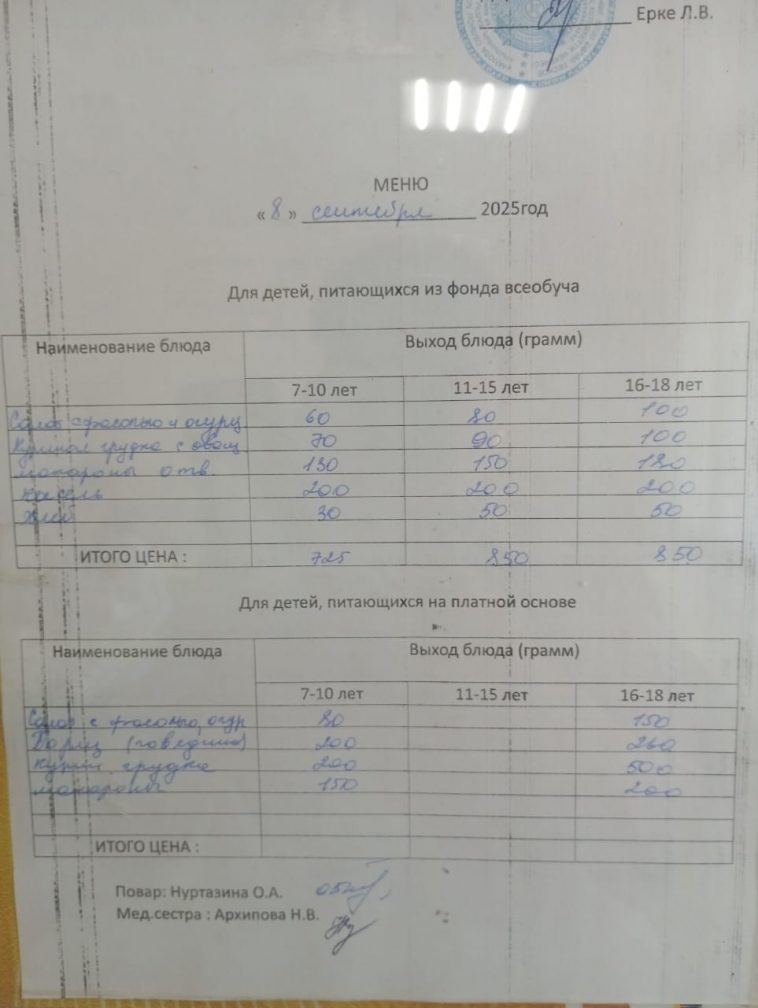 Ерке Л.В.
МЕНЮ
« 8 » сентября 2025год
Для детей, питающихся из фонда всеобуча
Наименование блюда Выход блюда (грамм)
7-10 лет 11-15 лет 16-18 лет
Салат с фасолью и огурц 60 80 100
Куриная грудка с овощ 70 90 100
макароны отв. 130 150 180
кисель 200 200 200
хлеб 30 50 50
ИТОГО ЦЕНА : 725 850 850
Для детей, питающихся на платной основе
Наименование блюда Выход блюда (грамм)
7-10 лет 11-15 лет 16-18 лет
Салат с фасолью, огур 80 150
Борщ (говядина) 200 260
курин грудка 200 500
макароны 150 200
ИТОГО ЦЕНА :
Повар: Нуртазина О.А.
Мед.сестра : Архипова Н.В.